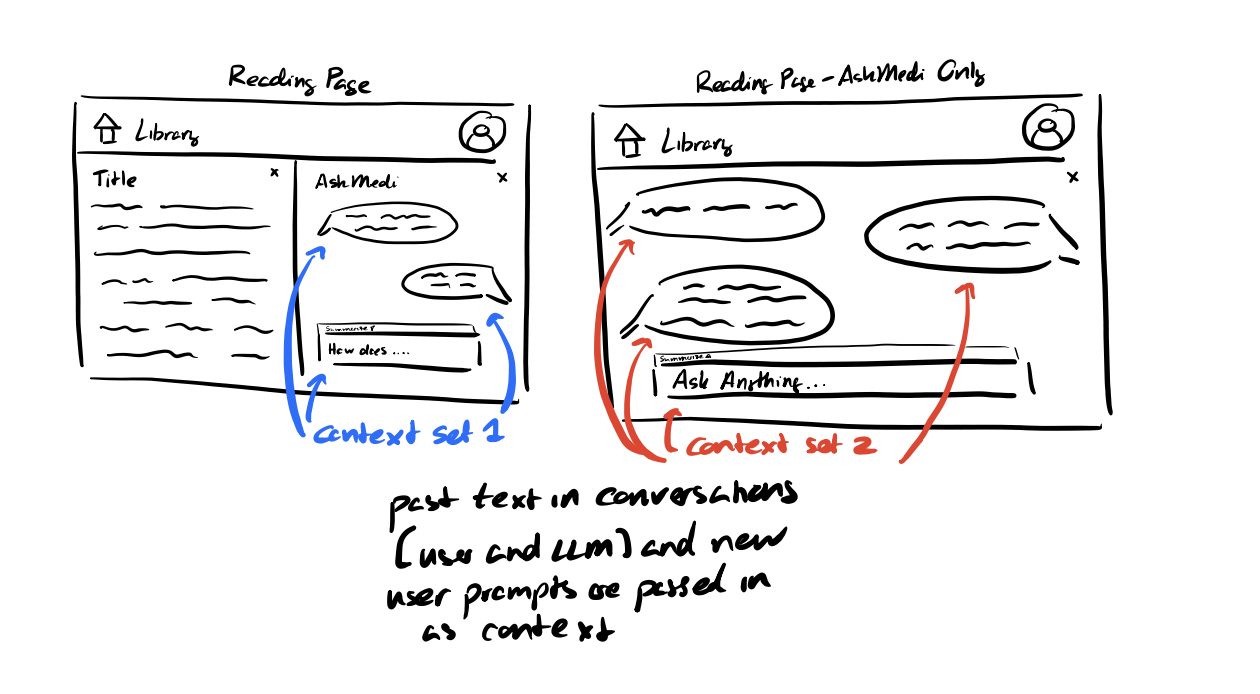 Reading Page
Library
Title
x
AskMedi
x
Summarize
How does ....
context set 1
Reading Page - AskMedi Only
Library
x
Summarize
Ask Anything...
context set 2
past text in conversations
(user and LLM) and new
user prompts are passed in
as context